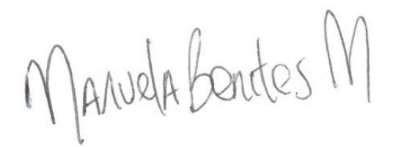 Manuela Benites M